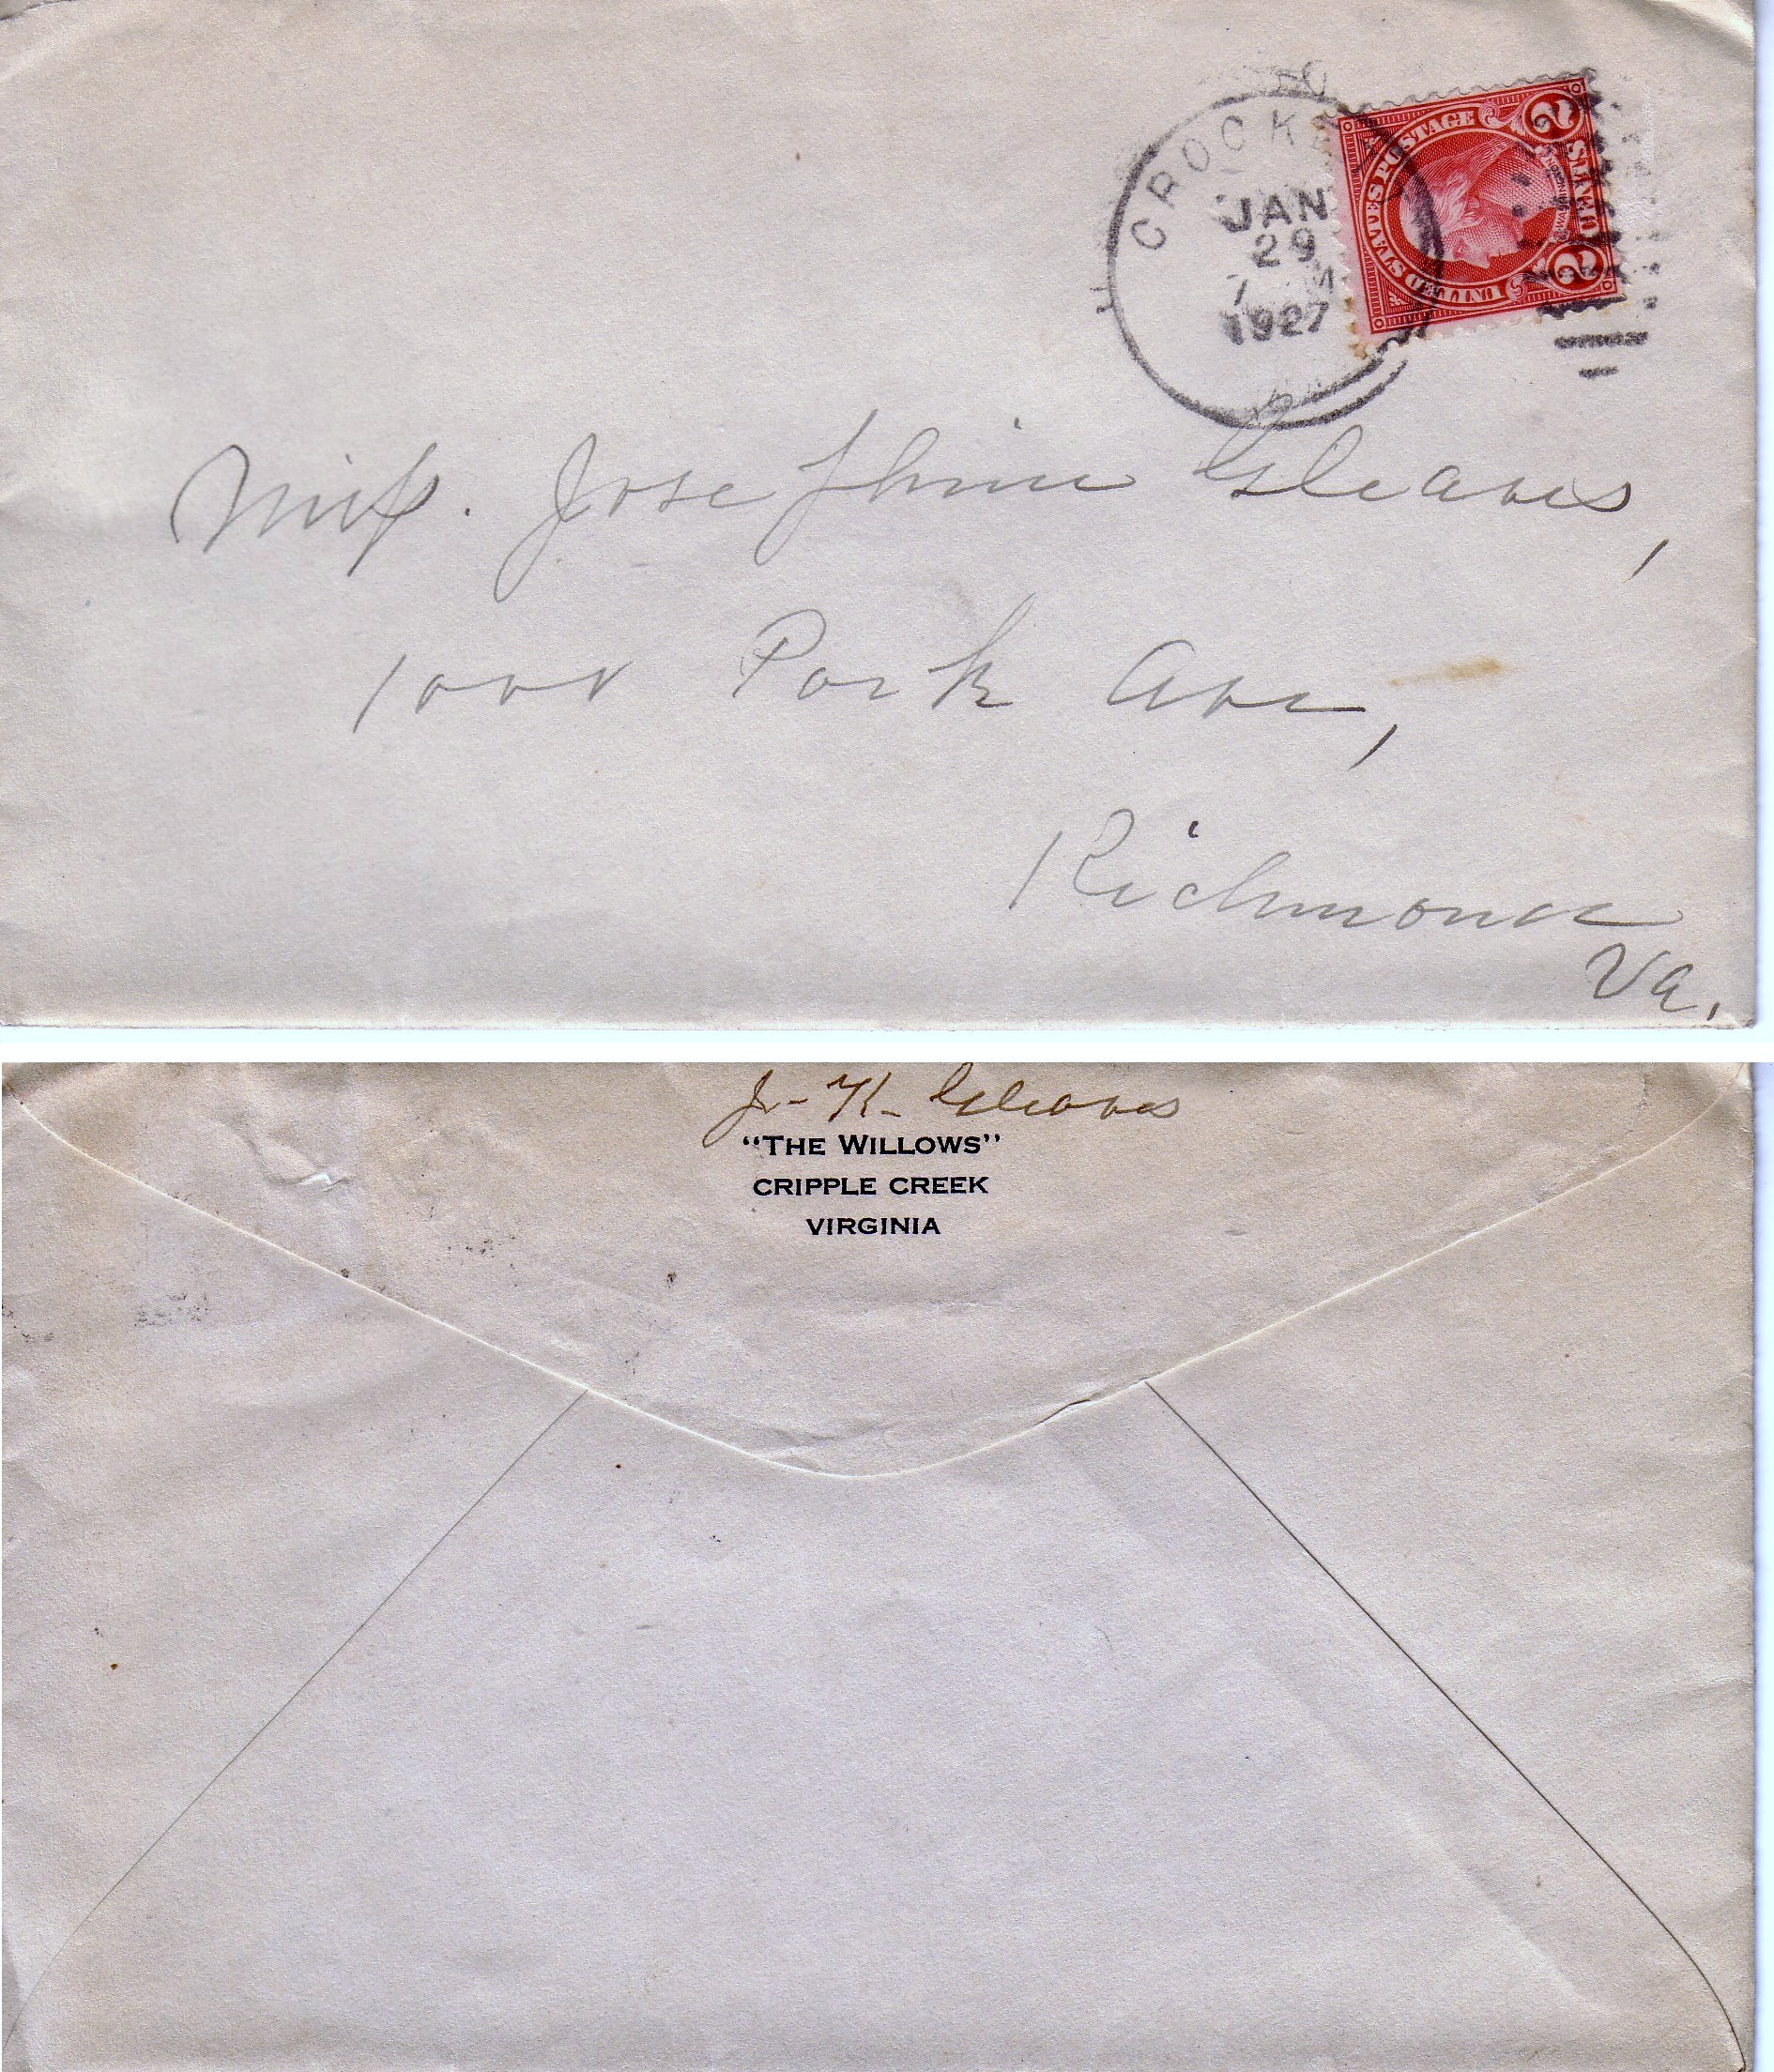 CROCKE
JAN
29
1927
UNITED STATES POSTAGE
WASHINGTON
2 2
Miss. Josephine Gleaves,
1000 Park Ave,
Richmond
Va.
J- K- Gleaves
“THE WILLOWS”
CRIPPLE CREEK
VIRGINIA